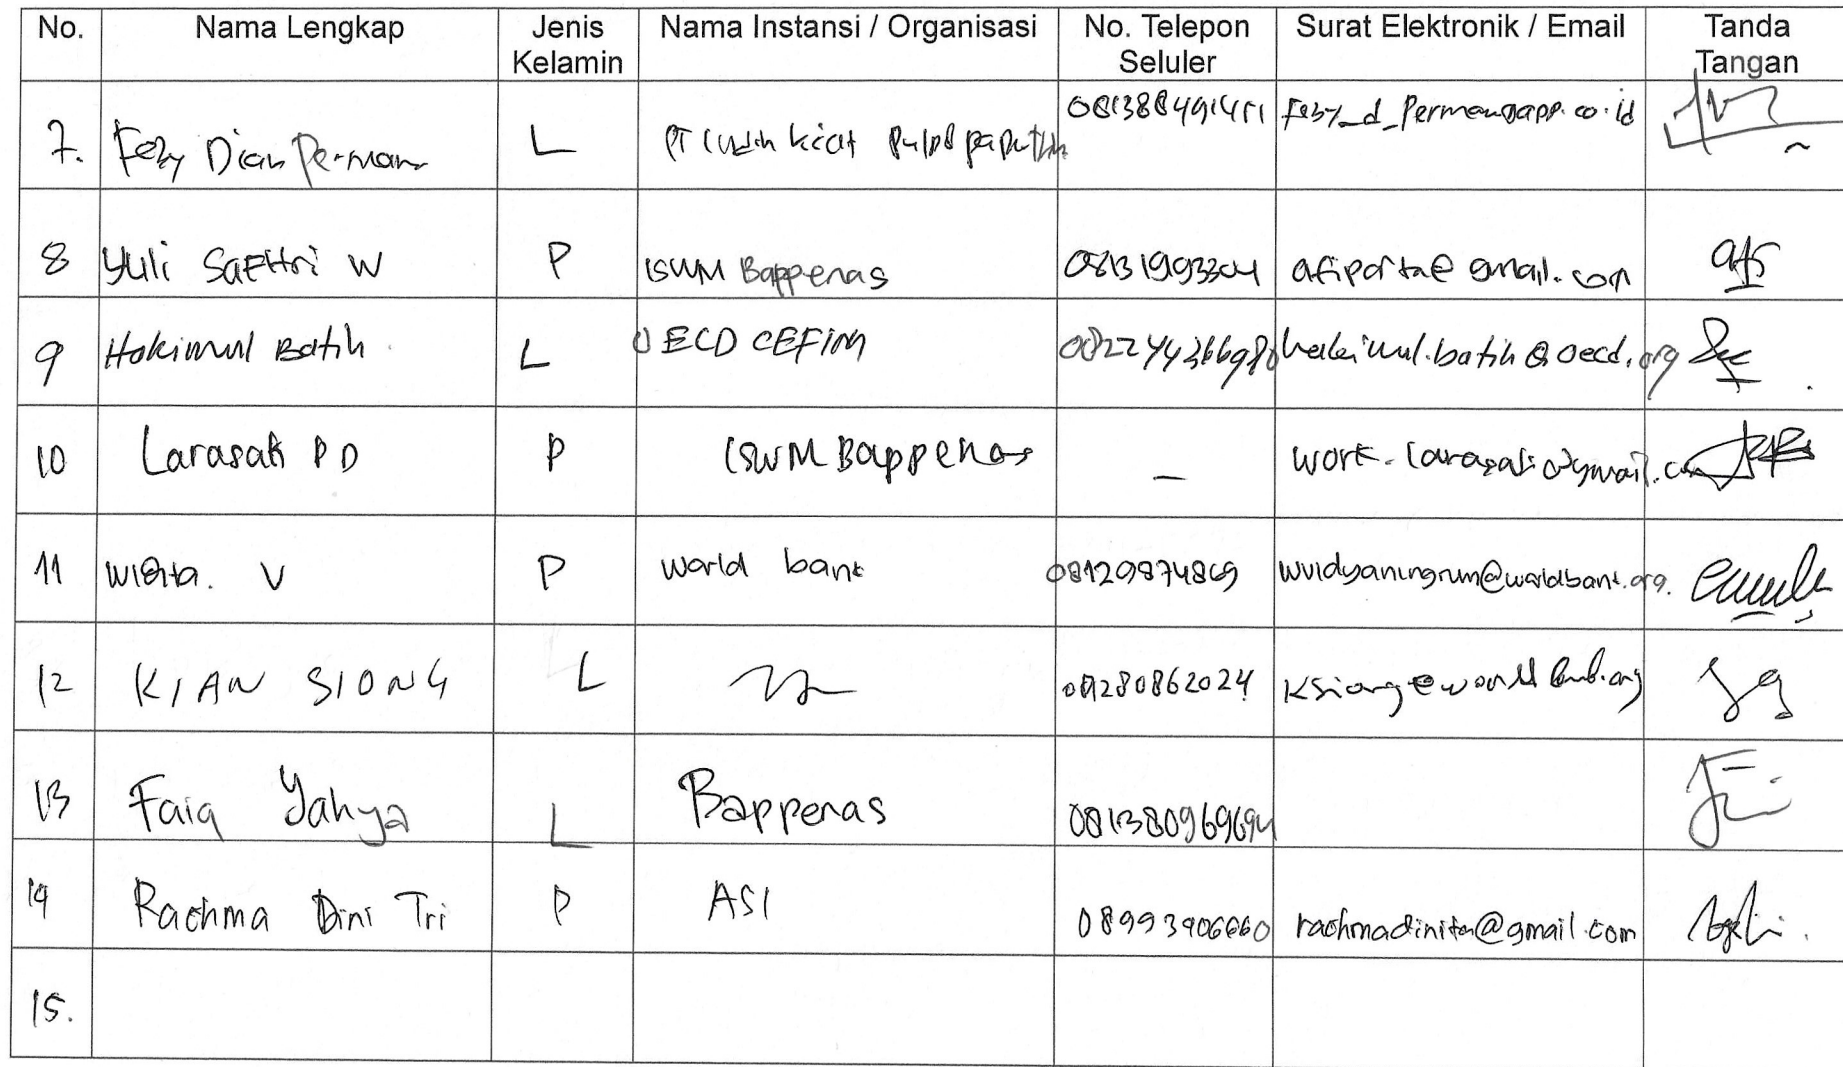 No. Nama Lengkap Jenis Kelamin Nama Instansi / Organisasi No. Telepon Seluler Surat Elektronik / Email Tanda Tangan
7. Feby Dian Permana L PT
8 Yuli Safitri W P ISWM Bappenas afiporta@gmail.com
9 Hakimul Batih L OECD CEFIM hakimul.batih@oecd.org
10 Larasati PD P ISWM Bappenas - work.larasati@gmail.com
11 Widya. V P World bank 08129874869 wvidyaningrum@worldbank.org.
12 KIAN SIONG L 081280862024 ksiong@worldbank.org
13 Faiq Yahya L Bappenas 081380969694
14 Rachma Dini Tri P ASI 08993906660 rachmadinita@gmail.com
15.